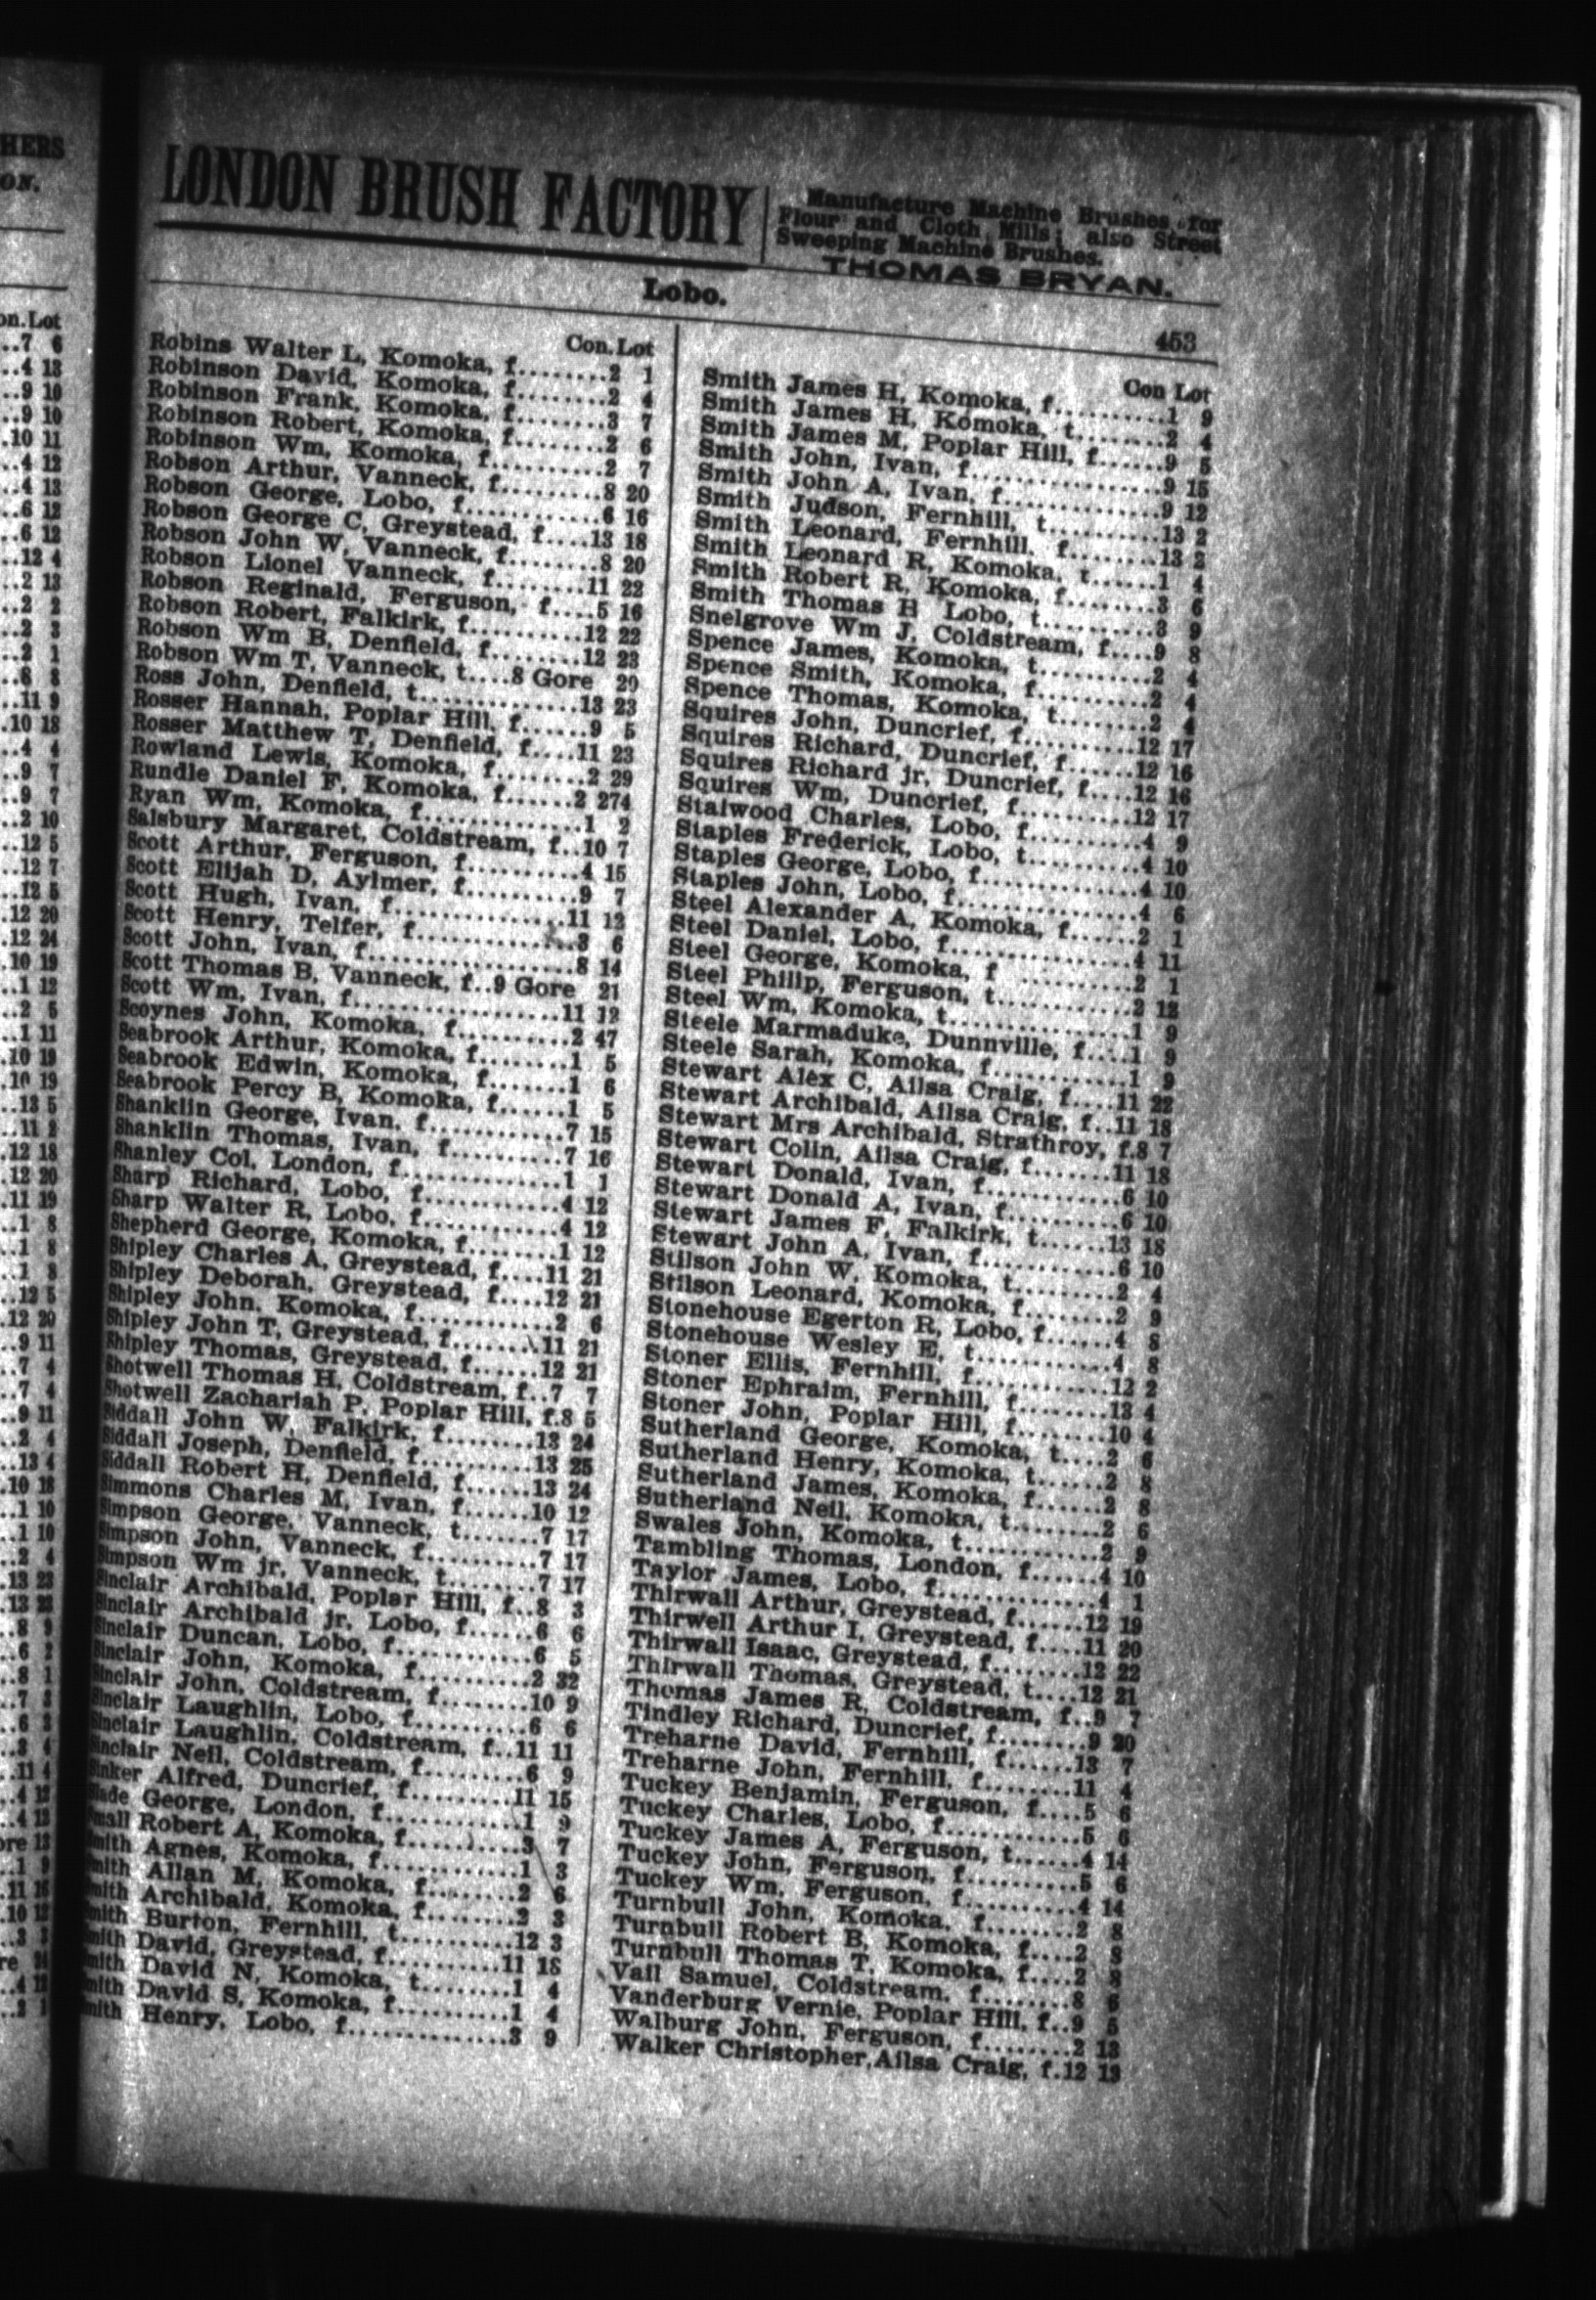 HERS
ON.
on.Lot
..7 6
..4 13
..9 10
..9 10
.10 11
..4 12
..4 13
..6 12
..6 12
..12 4
..2 13
..2 2
..2 3
..2 1
..8 8
..11 9
.10 18
..4 4
..9 7
..9 7
..2 10
..12 5
..12 7
..12 5
.12 20
.12 24
.10 19
..1 12
..2 5
..1 11
.10 19
.10 19
..13 5
..11 2
.12 18
.12 20
.11 19
..1 8
..1 8
..1 8
..12 5
.12 20
..9 11
..7 4
..7 4
..9 11
..2 4
..13 4
.10 18
..1 10
..1 10
..2 4
.13 23
.13 23
..8 9
..6 2
..8 1
..7 3
..6 2
..3 4
..11 4
..4 12
..4 12
ore 13
..1 9
.11 16
.10 12
..3 3
re 24
LONDON BRUSH FACTORY
Manufacture Machine Brushes for
Flour and Cloth Mills; also Street
Sweeping Machine Brushes.
THOMAS BRYAN.
Lobo.
453
Con.Lot
Robins Walter L, Komoka, f........2 1
Robinson David, Komoka, f........2 4
Robinson Frank, Komoka, f........3 7
Robinson Robert, Komoka, f.......2 6
Robinson Wm, Komoka, f..........2 7
Robson Arthur, Vanneck, f.........8 20
Robson George, Lobo, f............6 16
Robson George C, Greystead, f....13 18
Robson John W, Vanneck, f........8 20
Robson Lionel Vanneck, f.......11 22
Robson Reginald, Ferguson, f....5 16
Robson Robert, Falkirk, f..........12 22
Robson Wm B, Denfield, f........12 23
Robson Wm T, Vanneck, t....8 Gore 20
Ross John, Denfield, t..............13 23
Rosser Hannah, Poplar Hill, f......9 5
Rosser Matthew T, Denfield, f....11 23
Rowland Lewis, Komoka, f........2 29
Rundle Daniel F, Komoka, f......2 274
Ryan Wm, Komoka, f..............1 2
Salsbury Margaret, Coldstream, f..10 7
Scott Arthur, Ferguson, f..........4 15
Scott Elijah D, Aylmer, f..........9 7
Scott Hugh, Ivan, f...............11 12
Scott Henry, Telfer, f..............3 6
Scott John, Ivan, f.................8 14
Scott Thomas B, Vanneck, f..9 Gore 21
Scott Wm, Ivan, f..................11 12
Scoynes John, Komoka, f..........2 47
Seabrook Arthur, Komoka, f.......1 5
Seabrook Edwin, Komoka, f.......1 6
Seabrook Percy B, Komoka, f......1 5
Shanklin George, Ivan, f............7 15
Shanklin Thomas, Ivan, f..........7 16
Shanley Col, London, f.............1 1
Sharp Richard, Lobo, f............4 12
Sharp Walter R, Lobo, f...........4 12
Shepherd George, Komoka, f........1 12
Shipley Charles A, Greystead, f....11 21
Shipley Deborah, Greystead, f....12 21
Shipley John, Komoka, f............2 6
Shipley John T, Greystead, f.......11 21
Shipley Thomas, Greystead, f......12 21
Shotwell Thomas H, Coldstream, f..7 7
Shotwell Zachariah P, Poplar Hill, f.8 5
Siddall John W, Falkirk, f.........13 24
Siddall Joseph, Denfield, f..........13 25
Siddall Robert H, Denfield, f......13 24
Simmons Charles M, Ivan, f......10 12
Simpson George, Vanneck, t.......7 17
Simpson John, Vanneck, f..........7 17
Simpson Wm jr, Vanneck, t........7 17
Sinclair Archibald, Poplar Hill, f..8 3
Sinclair Archibald jr, Lobo, f......6 6
Sinclair Duncan, Lobo, f...........6 5
Sinclair John, Komoka, f.........2 32
Sinclair John, Coldstream, f........10 9
Sinclair Laughlin, Lobo, f..........6 6
Sinclair Laughlin, Coldstream, f..11 11
Sinclair Neil, Coldstream, f........6 9
Sinker Alfred, Duncrief, f.........11 15
Slade George, London, f............1 9
Small Robert A, Komoka, f........3 7
Smith Agnes, Komoka, f............1 3
Smith Allan M, Komoka, f........2 6
Smith Archibald, Komoka, f........2 3
Smith Burton, Fernhill, t..........12 3
Smith David, Greystead, f..........11 18
Smith David N, Komoka, t.........1 4
Smith David S, Komoka, f..........1 4
Smith Henry, Lobo, f...............3 9
Con Lot
Smith James H, Komoka, f..........1 9
Smith James H, Komoka, t........2 4
Smith James M, Poplar Hill, f......9 5
Smith John, Ivan, f.................9 15
Smith John A, Ivan, f..............9 12
Smith Judson, Fernhill, t..........13 2
Smith Leonard, Fernhill, f........13 2
Smith Leonard R, Komoka, t......1 4
Smith Robert R, Komoka, f........3 6
Smith Thomas H Lobo, t..........3 9
Snelgrove Wm J, Coldstream, f....9 8
Spence James, Komoka, t..........2 4
Spence Smith, Komoka, f..........2 4
Spence Thomas, Komoka, t........2 4
Squires John, Duncrief, f..........12 17
Squires Richard, Duncrief, f......12 16
Squires Richard jr, Duncrief, f....12 16
Squires Wm, Duncrief, f..........12 17
Stalwood Charles, Lobo, f.........4 9
Staples Frederick, Lobo, t.........4 10
Staples George, Lobo, f............4 10
Staples John, Lobo, f..............4 6
Steel Alexander A, Komoka, f......2 1
Steel Daniel, Lobo, f..............4 11
Steel George, Komoka, f ..........2 1
Steel Philip, Ferguson, t...........2 12
Steel Wm, Komoka, t..............1 9
Steele Marmaduke, Dunnville, f....1 9
Steele Sarah, Komoka, f...........1 9
Stewart Alex C, Ailsa Craig, f....11 22
Stewart Archibald, Ailsa Craig, f..11 18
Stewart Mrs Archibald, Strathroy, f.8 7
Stewart Colin, Ailsa Craig, f.......11 18
Stewart Donald, Ivan, f............6 10
Stewart Donald A, Ivan, f..........6 10
Stewart James F, Falkirk, t......13 18
Stewart John A, Ivan, f............6 10
Stilson John W, Komoka, t........2 4
Stilson Leonard, Komoka, f........2 9
Stonehouse Egerton R, Lobo, f......4 8
Stonehouse Wesley E, t............4 8
Stoner Ellis, Fernhill, f............12 2
Stoner Ephraim, Fernhill, f........13 4
Stoner John, Poplar Hill, f........10 4
Sutherland George, Komoka, t....2 6
Sutherland Henry, Komoka, t......2 8
Sutherland James, Komoka, f......2 8
Sutherland Neil, Komoka, t........2 6
Swales John, Komoka, t............2 9
Tambling Thomas, London, f......4 10
Taylor James, Lobo, f..............4 1
Thirwall Arthur, Greystead, f......12 19
Thirwell Arthur I, Greystead, f....11 20
Thirwall Isaac, Greystead, f........12 22
Thirwall Thomas, Greystead, t....12 21
Thomas James R, Coldstream, f..9 7
Tindley Richard, Duncrief, f........9 20
Treharne David, Fernhill, f......13 7
Treharne John, Fernhill, f........11 4
Tuckey Benjamin, Ferguson, f....5 6
Tuckey Charles, Lobo, f............5 6
Tuckey James A, Ferguson, t......4 14
Tuckey John, Ferguson, f..........5 6
Tuckey Wm, Ferguson, f..........4 14
Turnbull John, Komoka, f........2 8
Turnbull Robert B, Komoka, f....2 8
Turnbull Thomas T, Komoka, f....2 8
Vail Samuel, Coldstream, f........8 6
Vanderburg Vernie, Poplar Hill, f..9 5
Walburg John, Ferguson, f........2 13
Walker Christopher, Ailsa Craig, f.12 13